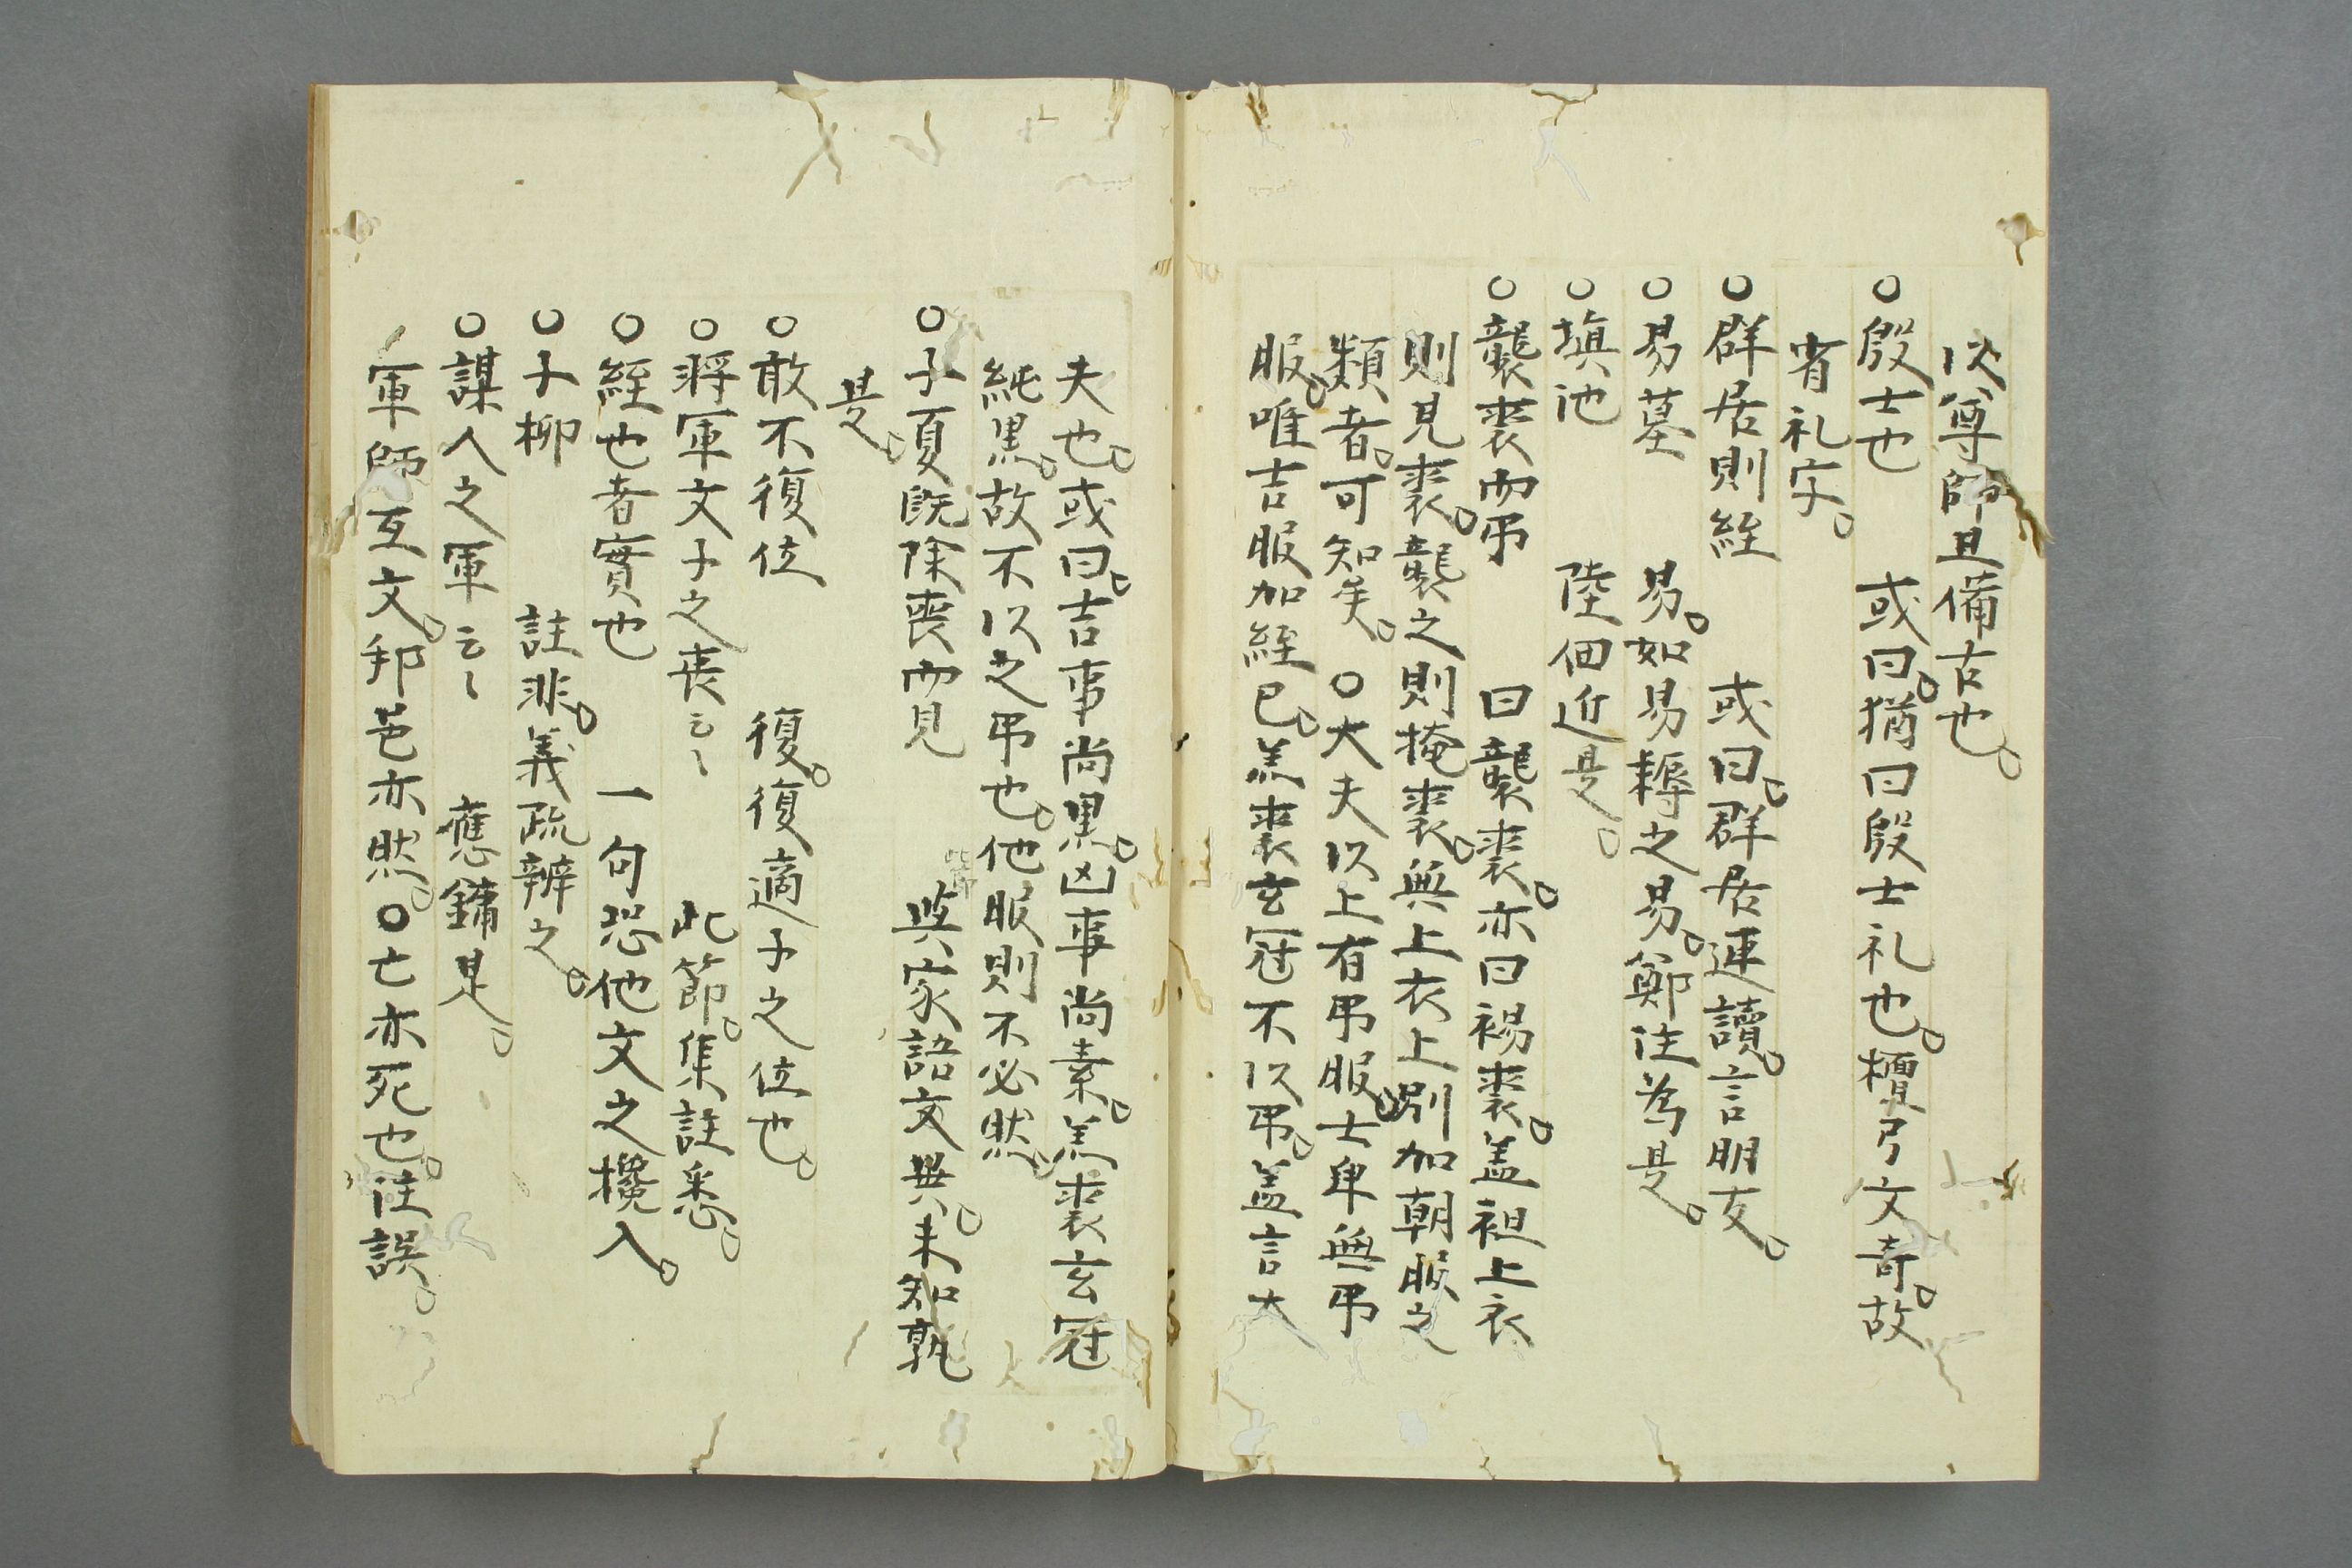 以尊師且備古也。
○殷士也　或曰。猶曰殷士礼也。檀弓文奇。故
省礼字。
○群居則絰　或曰。群居連讀。言朋友。
○易墓　易。如易耨之易。鄭注為是。
○填池　陸佃近是。
○襲裘而弔　曰襲裘。亦曰裼裘。盖袒上衣
則見裘。襲之則掩裘。無上衣上別加朝服之
類者。可知矣。○大夫以上有弔服。士卑無弔
服。唯吉服加絰已。羔裘玄冠不以弔。盖言大
夫也。或曰。吉事尚黒。凶事尚素。羔裘玄冠
純黒。故不以之弔也。他服則不必然。
○子夏既除喪而見　與家語文異。未知孰
是。
○敢不復位　復。復適子之位也。
○将軍文子之喪云々　此節。集註悉。
○絰也者實也　一句恐他文之攙入。
○子柳　註非。義疏辨之。
○謀人之軍云々　應鏞是。
軍師互文。邦邑亦然。○亡亦死也。注誤。